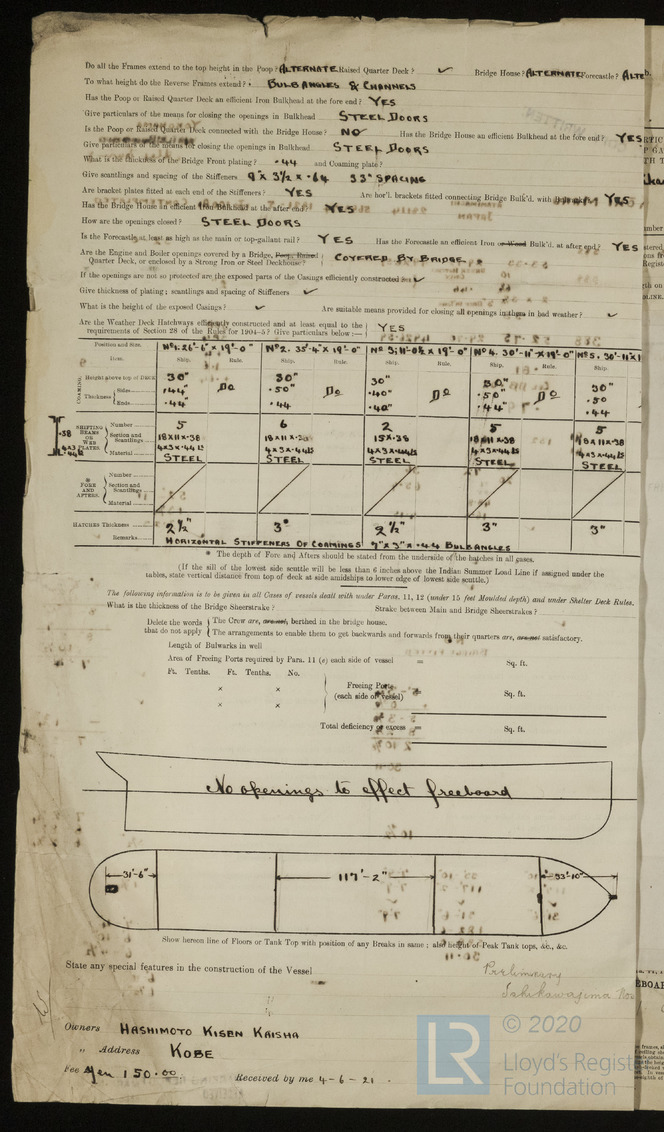 Do all the Frames extend to the top height in the Poop? ALTERNATE Raised Quarter Deck? ✓ Bridge House? ALTERNATE Forecastle? ALTE
To what height do the Reverse Frames extend? BULB ANGLES & CHANNELS
Has the Poop or Raised Quarter Deck an efficient Iron Bulkhead at the fore end? YES
Give particulars of the means for closing the openings in Bulkhead STEEL DOORS
Is the Poop or Raised Quarter Deck connected with the Bridge House? NO Has the Bridge House an efficient Bulkhead at the fore end? YES
Give particulars of the means for closing the openings in Bulkhead STEEL DOORS
What is the thickness of the Bridge Front plating? .44 and Coaming plate?
Give scantlings and spacing of the Stiffeners 9" X 3½ X .64 33" SPACING
Are bracket plates fitted at each end of the Stiffeners? YES Are hor'l. brackets fitted connecting Bridge Bulk'd. with YES
Has the Bridge House an efficient Iron Bulkhead at the after end? YES
How are the openings closed? STEEL DOORS
Is the Forecastle at least as high as the main or top-gallant rail? YES Has the Forecastle an efficient Iron or Wood Bulk'd. at after end? YES
Are the Engine and Boiler openings covered by a Bridge, Poop, Raised
Quarter Deck, or enclosed by a Strong Iron or Steel Deckhouse? COVERED BY BRIDGE.
If the openings are not so protected are the exposed parts of the Casings efficiently constructed ✓
Give thickness of plating; scantlings and spacing of Stiffeners ✓
What is the height of the exposed Casings? ✓ Are suitable means provided for closing all openings in them in bad weather? ✓
Are the Weather Deck Hatchways efficiently constructed and at least equal to the
requirements of Section 28 of the Rules for 1904-5? Give particulars below:— YES
Position and Size. Nº1. 26'-6" X 19'-0" Nº2. 35'-4" X 19'-0" Nº 3; 11'-0½ X 19'-0" Nº 4. 30'-11" X 19'-0" Nº 5. 30'-11 X 1
Item. Ship. Rule. Ship. Rule. Ship. Rule. Ship. Rule. Ship.
COAMING. Height above top of Deck 30" 30" 30" 30" 30"
Thickness Sides .44" Do .50" Do .40" Do .50" Do .50
Ends .44" .44 .40" .44" .44
SHIFTING BEAMS OR WEB PLATES Number 5 6 2 5 5
.38 Section and Scantlings 18 X 11 X .38 18 X 11 X 15 X .38 18 X 11 X .38 18 X 11 X .38
4X3 X .44 4X3 X .44 4X3 X .44 4X3 X .44 4X3 X .44
Material STEEL STEEL STEEL STEEL STEEL
* FORE AND AFTERS. Number
Section and Scantlings
Material
HATCHES Thickness 2½" 3" 2½" 3" 3"
Remarks HORIZONTAL STIFFENERS OF COAMINGS 7" X 3" X .44 BULB ANGLES
* The depth of Fore and Afters should be stated from the underside of the hatches in all cases.
(If the sill of the lowest side scuttle will be less than 6 inches above the Indian Summer Load Line if assigned under the
tables, state vertical distance from top of deck at side amidships to lower edge of lowest side scuttle.)
The following information is to be given in all Cases of vessels dealt with under Paras. 11, 12 (under 15 feet Moulded depth) and under Shelter Deck Rules.
What is the thickness of the Bridge Sheerstrake? Strake between Main and Bridge Sheerstrakes?
Delete the words The Crew are, are not, berthed in the bridge house.
that do not apply The arrangements to enable them to get backwards and forwards from their quarters are, are not satisfactory.
Length of Bulwarks in well
Area of Freeing Ports required by Para. 11 (e) each side of vessel = Sq. ft.
Ft. Tenths. Ft. Tenths. No.
× × Freeing Ports
(each side of vessel) = Sq. ft.
× ×
Total deficiency or excess = Sq. ft.
No openings to effect freeboard
31'-6" 117'-2" 33'-10"
Show hereon line of Floors or Tank Top with position of any Breaks in same; also height of Peak Tank tops, &c., &c.
State any special features in the construction of the Vessel
Preliminary
Ishikawajima No
Owners HASHIMOTO KISEN KAISHA
„ Address KOBE
Fee Yen 150.00 Received by me 4-6-21.
LR © 2020
Lloyd's Regist
Foundation